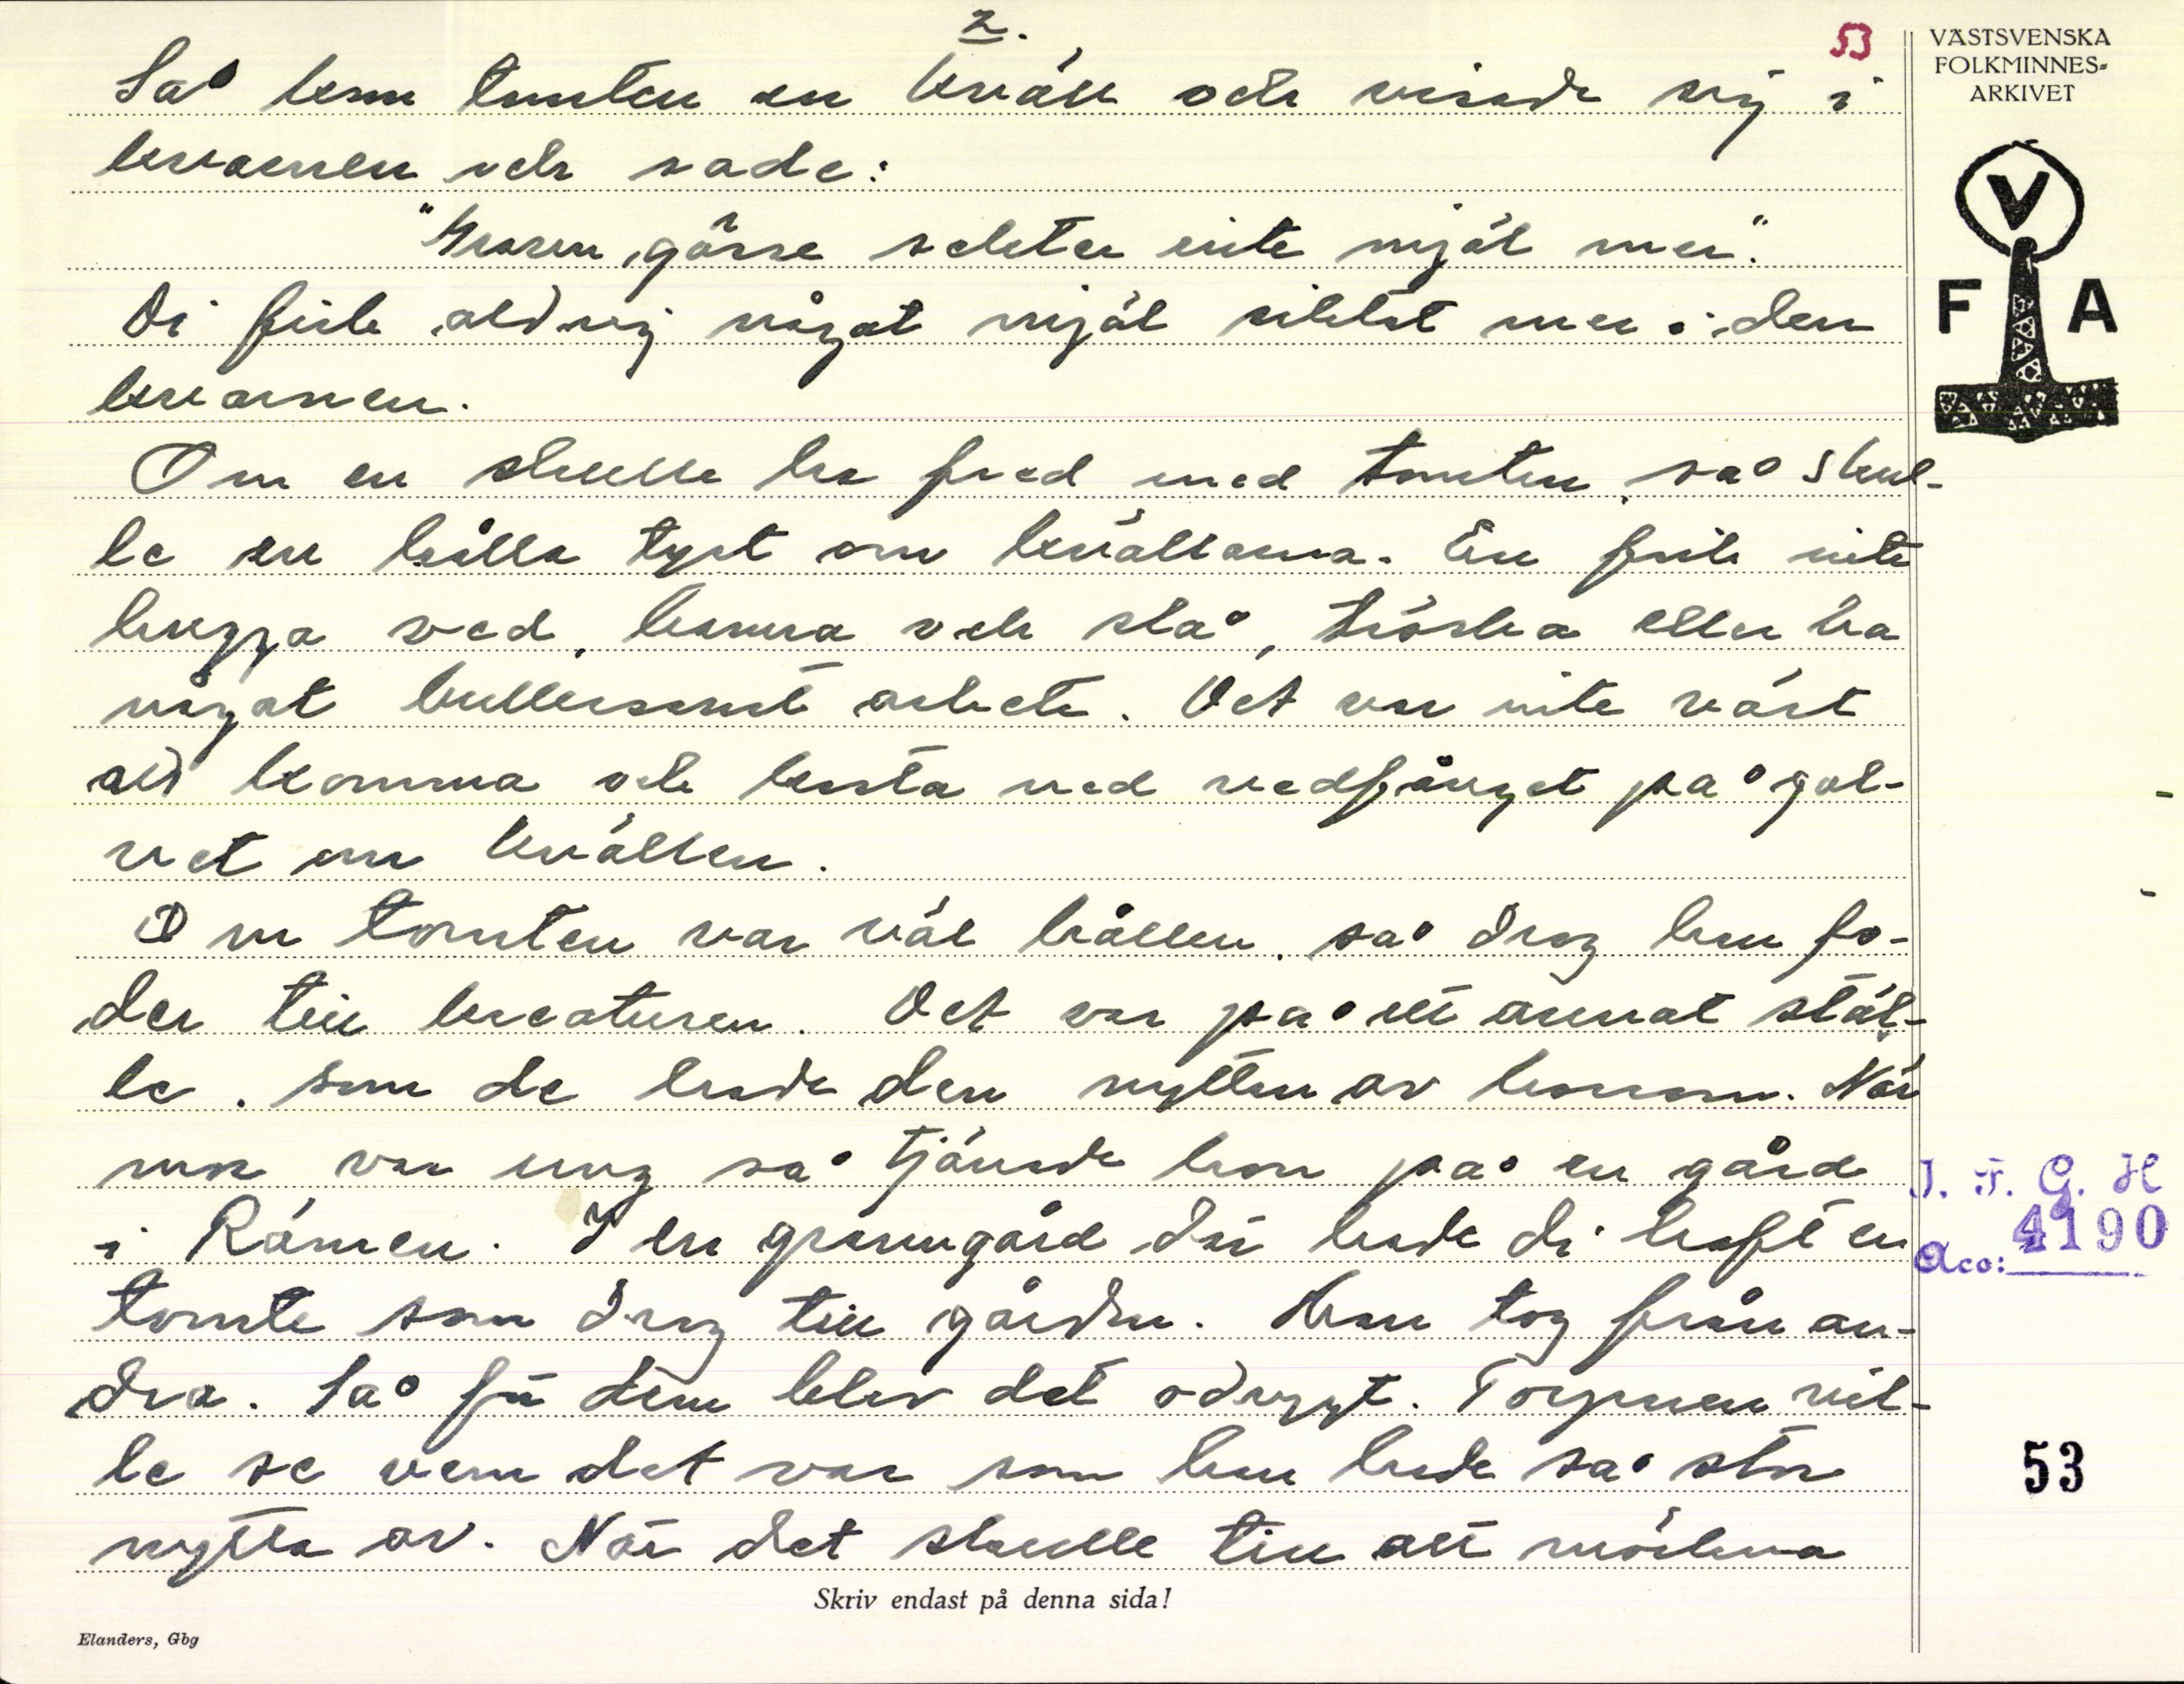 2.
53
VÄSTSVENSKA
FOLKMINNES-
ARKIVET
Så kom tomten en kväll och visade sig i
kvarnen och sade:
"Grå gåsse sikter inte mjöl mer".
V
F A
Di fick aldrig något mjöl siktat mer i den
kvarnen.
Om en skulle ha fred med tomten, så skul-
le en hålla tyst om kvällarna. En fick inte
hugga ved, banka och slå, tröska eller ha
något bullersamt arbete. Det var inte värt
att komma och kasta ned vedfånget på gol-
vet om kvällen.
Om tomten var väl hållen, så drog han fo-
der till kreaturen. Det var på ett annat stäl-
le, som de hade den nyttan av honom. När
mor var ung så tjänade hon på en gård
i Rámen. I en granngård där hade di haft en
tomte som drog till gården. Han tog från an-
dra. Så för dem blev det odrygt. Torparen vil-
le se vem det var som han hade så stor
nytta av. När det skulle till att mörkna
I. F. G. H
Acc: 4190
53
Skriv endast på denna sida!
Elanders, Gbg